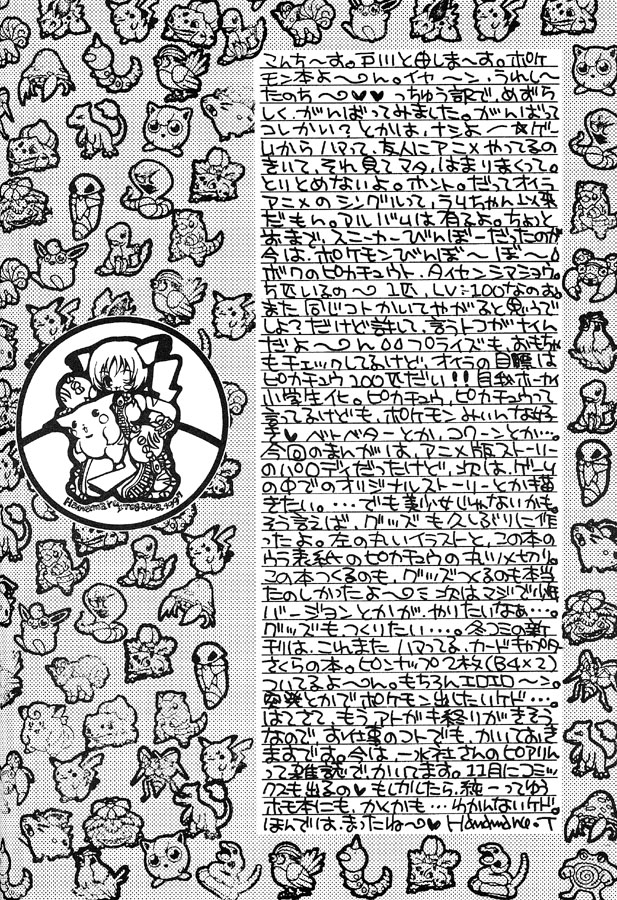 こんち〜す。戸川と申しま〜す。ポケ
モン本よ〜ん。イヤ〜ン、うれし〜
たのち〜♥♥っちゅう訳で、めずら
しく、がんばってみました。がんばって
コレかい?とかは、ナシよ〜☆ゲー
ムからハマって、友人にアニメやってるの
きいて、それ見てマタ、はまりまくって。
とりとめないよ。ホント。だってオイラ
アニメのシングルって、うる ちゃん以来
だもん。アルバムは有るよ。ちょっと
前まで、スニーカーびんぼーだったのが
今は、ポケモンびんぼ〜ぼ〜
ボクのピカチュウト、タイセンシマショウ。
5匹いるの〜1匹、LV:100なのお。
また同じコトかいてやがると思うで
しょ?だけど許して、言うトコがナイん
だよ〜んプライズも、おもちゃ
もチェックしてるけど、オイラの目標は
ピカチュウ100匹だい!!目
小学生化。ピカチュウ、ピカチュウって
言ってるけども、ポケモンみぃんなお好
き♥ベトベターとか、コクーンとか…。
今回のまんがは、アニメ版ストーリー
のパロディだったけど、次は、ゲーム
の中でのオリジナルストーリーとか描
きたい。…でも美少女じゃないかも。
そう言えば、グッズも久しぶりに作
ったよ。左の丸いイラストと、この本の
ウラ表紙のピカチュウの丸いメカリ。
この本つくるのも、グッズつくるのも本当
たのしかったよ〜ミ次はマジで
バージョンとかが、やりたいなぁ…。
グッズもつくりたい…。冬コミの新
刊は、これまたハマってる、カードキャプタ
さくらの本。ピンナップ2枚(B4×2)
ついてるよ〜ん。もちろんエロエロ〜ン。
突発とかでポケモン出したいケド…。
はてさて、もうアトガキ終りがきそう
なので、お仕事のコトでも、かいておき
ますです。今は、一水社さんのピアリィ
って雑誌でかいてます。11月にコミッ
クスも出るの♥もしかしたら、純一ってゆう
ホモ本にも、かくかも…わかんないケド。
ほんでは、まったね〜♥Hanamaru.T
Hanamaru.Togawa.1997